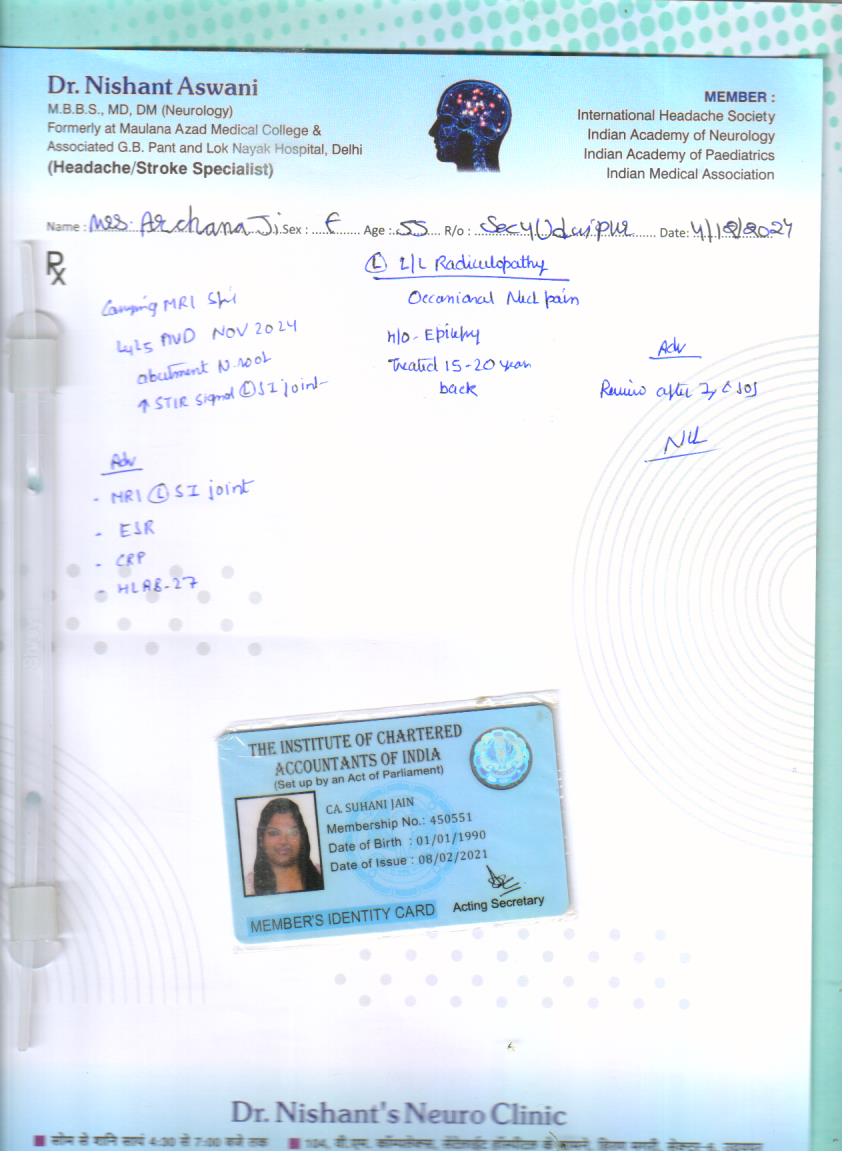 Dr. Nishant Aswani
M.B.B.S., MD, DM (Neurology)
Formerly at Maulana Azad Medical College &
Associated G.B. Pant and Lok Nayak Hospital, Delhi
(Headache/Stroke Specialist)
MEMBER :
International Headache Society
Indian Academy of Neurology
Indian Academy of Paediatrics
Indian Medical Association
Name : Mrs. Archana Ji Sex : F Age : 55 R/o : Sec 4 Udaipur Date:
Rx
(L) L/L Radiculopathy
Occasional Neck pain
H/O - Epilepsy
Treated 15-20 year
back
MRI
L4L5 NOV 2024
abutment N. root
↑ STIR signal (L) SI joint
Adv
- MRI (L) SI joint
- ESR
- CRP
- HLAB-27
Adv
Review after
THE INSTITUTE OF CHARTERED
ACCOUNTANTS OF INDIA
(Set up by an Act of Parliament)
CA. SUHANI JAIN
Membership No.: 450551
Date of Birth : 01/01/1990
Date of Issue : 08/02/2021
Acting Secretary
MEMBER'S IDENTITY CARD
Dr. Nishant's Neuro Clinic
सोम से शनि सायं 4:30 से 7:00 बजे तक